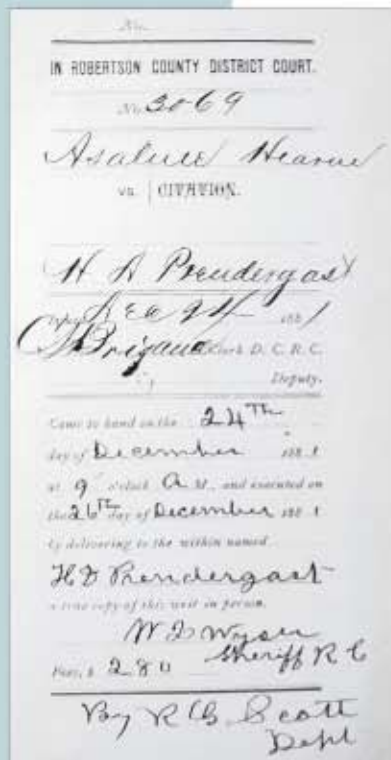 No.
IN ROBERTSON COUNTY DISTRICT COURT.
No. 3069
Hearne
vs. CITATION.
H D Prendergast
Dec 24 1881
Clerk D. C. R. C.
Deputy.
Came to hand on the 24th
day of December 1881
at 9 o'clock A M., and executed on
the 26th day of December 1881
by delivering to the within named
H D Prendergast
a true copy of this writ in person.
Sheriff R C
Fees, $ 2 80
By R G Scott
Dept